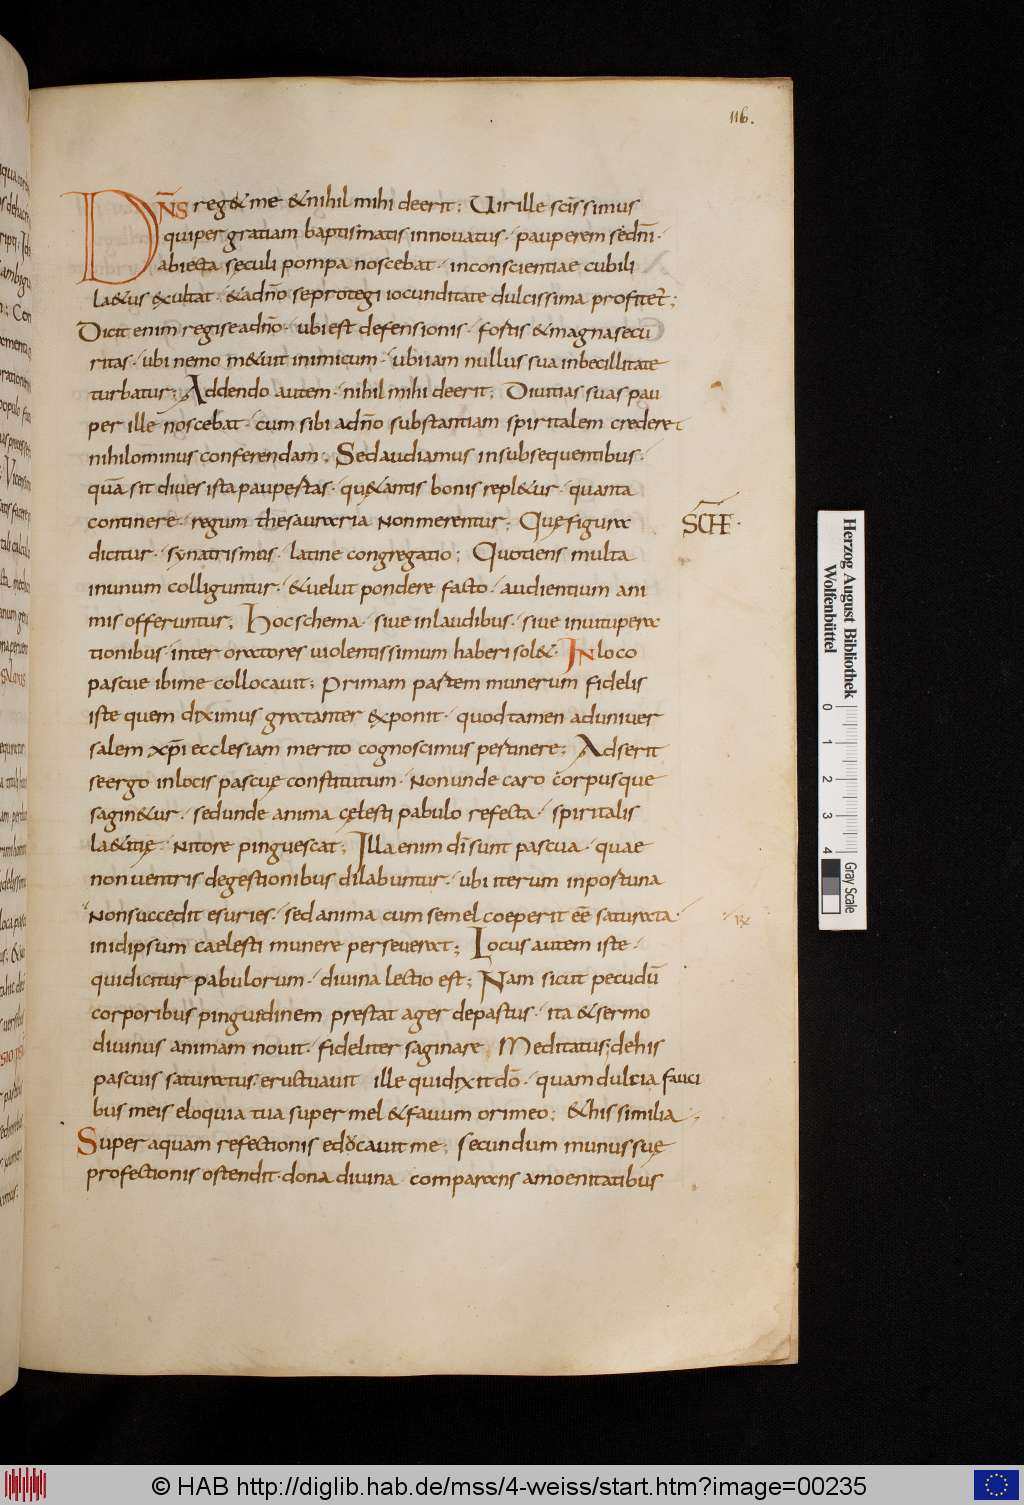 116.
DN̅S reg& me & nihil mihi deerit; Uir ille sc̅issimus
qui per gratiam baptismatis innouatus · pauperem se dn̅i ·
abiecta sęculi pompa noscebat · in conscientiae cubili
l&atus exultat · & a dn̅o se protegi iocunditate dulcissima profitet̅;
Dicit enim regi se a dn̅o · ubi est defensionis · fortis & magna secu
ritas · ubi nemo m&uit inimicum · ubi iam nullus sua inbecillitate
turbatur; Addendo autem · nihil mihi deerit; Diuitias suas pau
per ille noscebat · cum sibi a dn̅o substantiam spiritalem crederet
nihilominus conferendam; Sed audiamus in subsequentibus ·
qua̅ sit diues ista paupertas · quę tantis bonis repl&ur · quanta
continere · regum thesauri a non merentur; Quę figura
SCHE ·
dicitur · synatrismus · latine congregatio; Quotiens multa
in unum colliguntur · & uelut pondere facto · audientium ani
mis offeruntur; Hoc schema · siue in laudibus · siue in uitupera
tionibus · inter oratores uiolentissimum haberi sol& · IN loco
pascue ibi me collocauit; Primam partem munerum fidelis
iste quem diximus gratanter exponit · quod tamen ad uniuer
salem xp̅i ecclesiam merito cognoscimus pertinere; Adserit
se ergo in locis pascuę constitutum · non unde caro corpusque
sagin&ur · sed unde anima cęlesti pabulo refecta · spiritalis
l&atię nitore pinguescat; Illa enim di̅ sunt pascua · quae
non uentris degestionibus dilabuntur · ubi iterum inportuna
non succedit esuries · sed anima cum semel coeperit ee̅ saturata ·
in id ipsum caelesti munere perseuerat; Locus autem iste ·
qui dicitur pabulorum · diuina lectio est; Nam sicut pecudu̅
corporibus pinguedinem prestat ager depastus · ita & sermo
diuinus animam nouit · fideliter saginare Meditatus; de his
pascuis saturatus eructuauit ille qui dixit do̅ · quam dulcia fauci
bus meis eloquia tua super mel & fauum ori meo; & his similia
Super aquam refectionis educauit me; secundum munus suę
profectionis ostendit · dona diuina · comparans amoenitatibus
Herzog August Bibliothek
Wolfenbüttel
0 1 2 3 4
Gray Scale
© HAB http://diglib.hab.de/mss/4-weiss/start.htm?image=00235